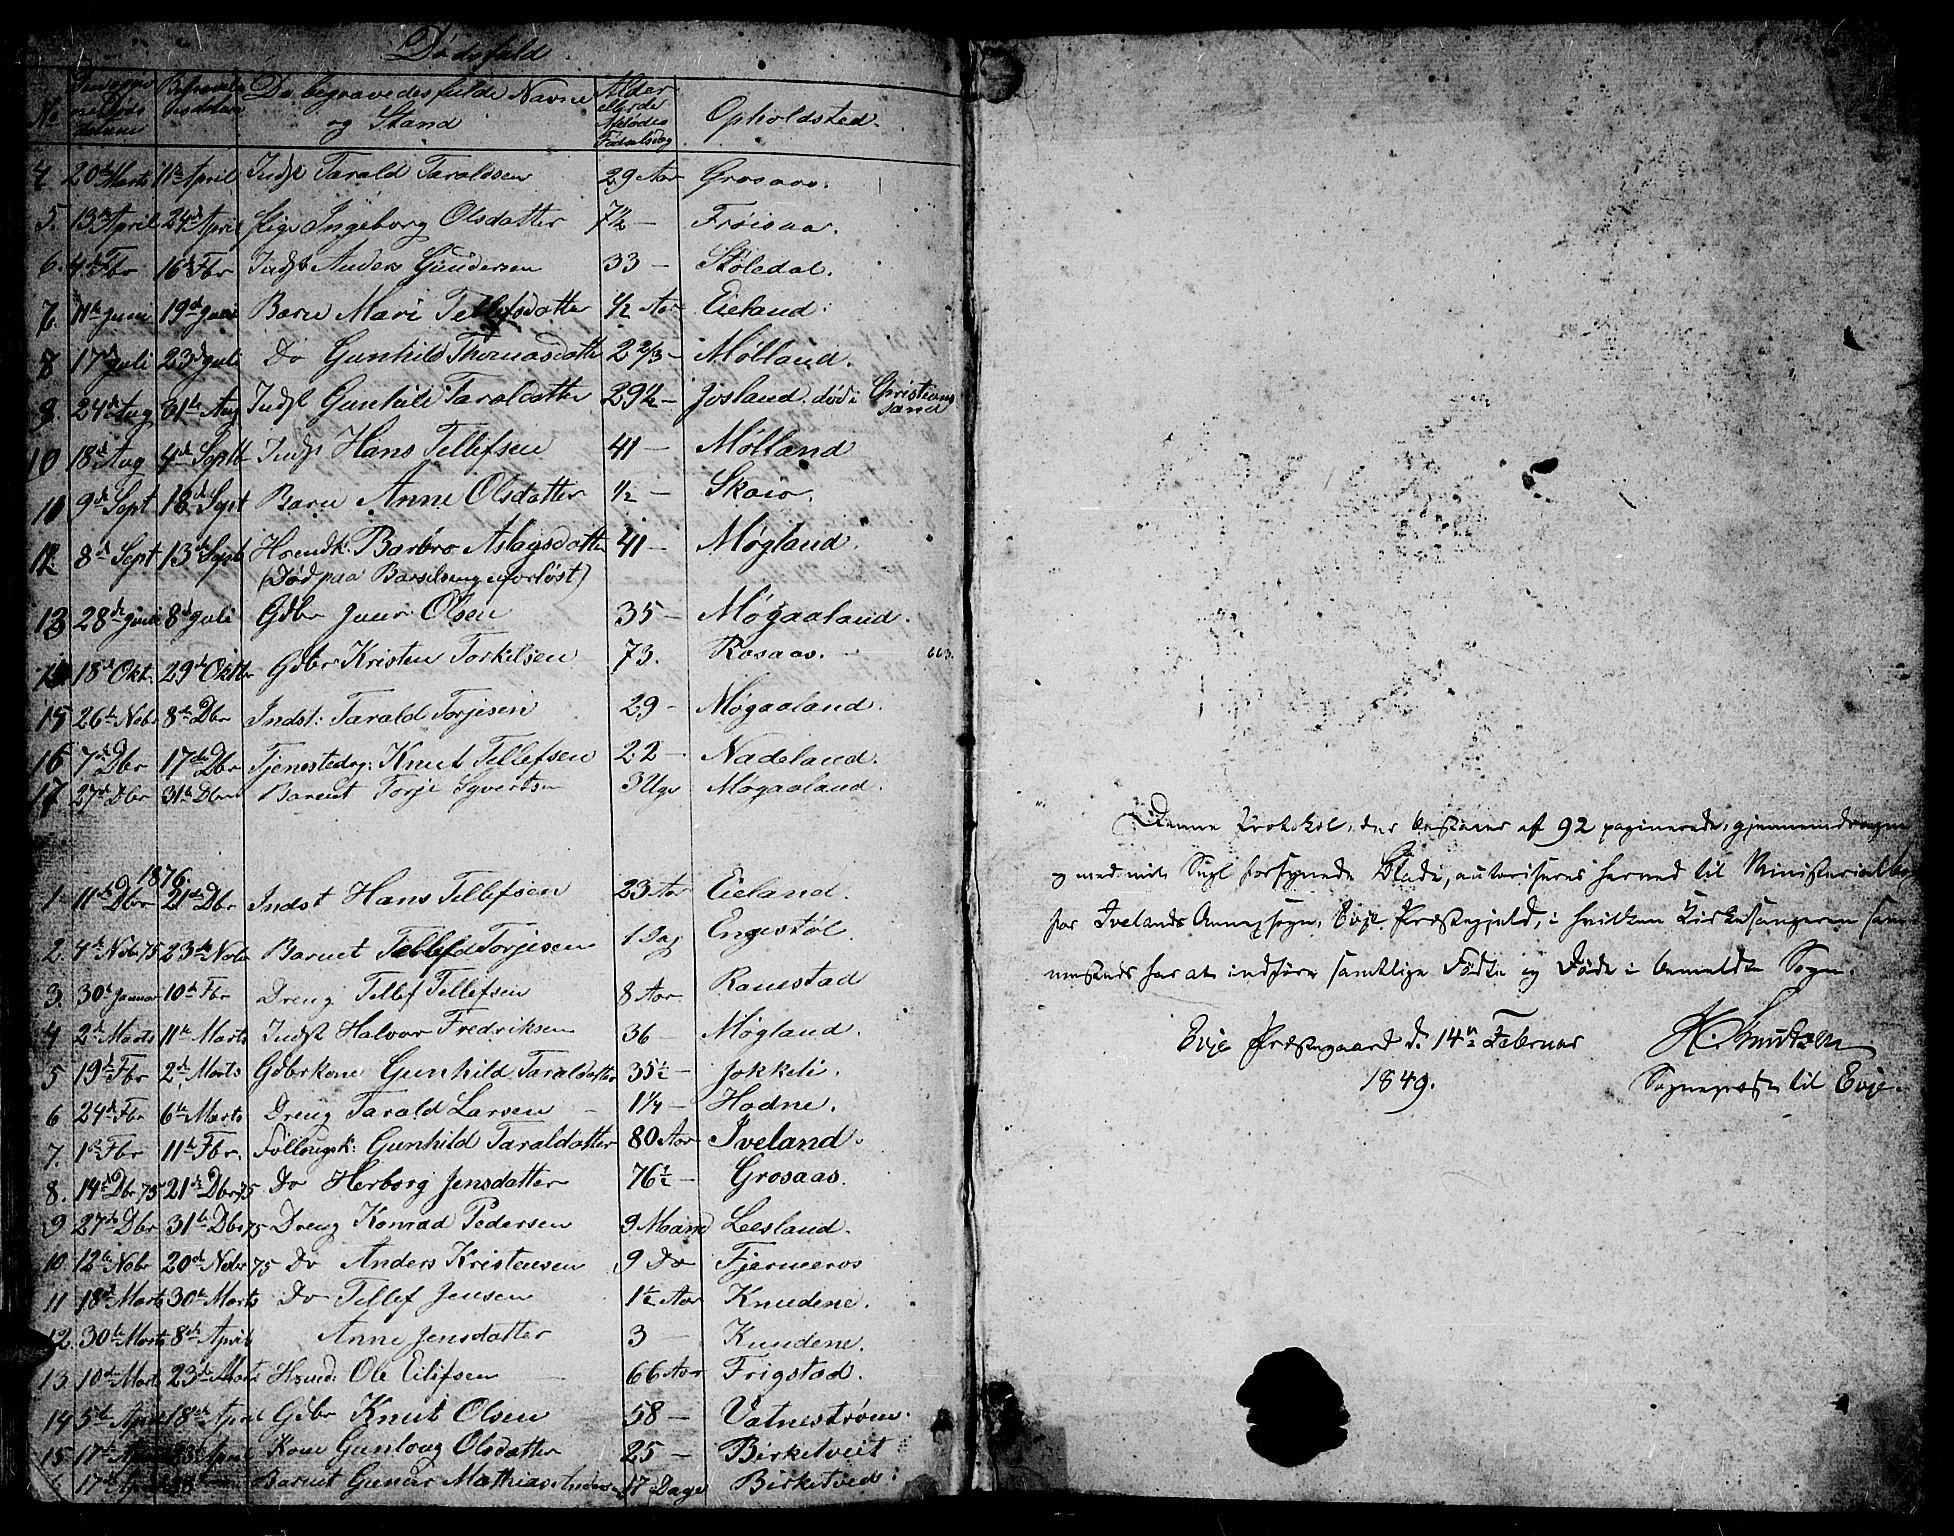 Dødsfald.
No
De begravedes fulde Navne og Stand
Alder eller de Fødselsdag
Opholdsted.
4 20de Marts 11te April Indst Tarald Taraldsen 29 Aar Grosaas.
5. 13de April 24de April Pige Ingeborg Olsdatter 7½ — Frøisaa.
6. 4de Fbr 16de Fbr Indst Anders Gundersen 33 — Støledal.
7. 11te Juni 19de Juni Barn Mari Tellefsdatter ½ Aar Eieland.
8 17de Juli 23de Juli Do Gunhild Thomasdatter 2 2/3 — Mølland.
9. 24de Aug 31te Aug Indst Gunhild Taraldatter 29½ — Josland. død i Christianssand
10 18de Aug 4de Septb Indst Hans Tellefsen 41 — Mølland
11 9de Sept 18de Sept Barn Anne Olsdatter ½ — Skaio.
12. 8de Sept 13de Septb Hsmdk: Barbro Aslagsdatter 41 — Møgland.
(Død paa Barselseng uforløst)
13 28de Juni 8de Juli Gdbr Juur Olsen 35 — Møgaaland.
14 18de Okt. 29de Oktbr Gdbr Kristen Torkilsen 73. Rosaas.
15 26te Nobr 8de Dbr Indst: Tarald Torjesen 29 — Møgaaland.
16 7de Dbr 17de Dbr Tjenestedrg: Knut Tellefsen 22 — Nadeland.
17 27de Dbr 31te Dbr Barnet Torje Syvertsen 3 Uger Møgaaland.
1876.
1. 11te Dbr 21de Dbr Indst Hans Tellefsen 23 Aar Eieland.
2. 4de Nobr 75 23de Nobr Barnet Tellef Torjesen 1 Dag Engestøl.
3. 30te Januar 10de Fbr Dreng Tellef Tellefsen 8 Aar Ranestad
4 2de Marts 11te Marts Indst Halvor Fredriksen 36 — Møgland.
5 19de Fbr 2de Marts Gdbrkone Gunhild Taraldatter 35½ — Jokkeli.
6 24de Fbr 6te Marts Dreng Tarald Larsen 1¼ — Hodne.
7. 1ste Fbr 11te Fbr. Føllougsk: Gunhild Taraldatter 80 Aar Iveland.
8. 14de Dbr 75 21de Dbr 75 Do Herborg Jensdatter 76½ — Grosaas.
9 27de Dbr 31te Dbr 75 Dreng Konrad Pedersen 9 Maand Leesland.
10. 12te Nobr 20de Nobr 75 Do Anders Kristensen 9 Do Fjermeros
11 18de Marts 30te Marts Do Tellef Jensen 1½ Aar Knudene.
12. 30te Marts 8de April Anne Jensdatter 3 Knudene.
13. 10de Marts 23de Marts Hsmd: Ole Eilifsen 66 Aar Frigstad.
14 5te April 18de April Gdbr Knut Olsen 58 — Vatnestrøm.
15 17de April Kone Gunloug Olsdatter 25 — Birketveit
17de Barnet Gunar Mathias Andersen 17 Dage Birketveit.
Denne Protokol, der bestaaer af 92 paginerede, gjennemdragne
og med mit Segl forsynede Blade, autoriseres herved til Ministerialbog
for Ivelands Annexsogn, Evje Præstegjeld, i hvilken Kirkesangeren sam-
mesteds har at indføre samtlige Fødte og Døde i bemeldte Sogn.
Evje Præstegaard d. 14de Februar
1849.
H. Knutzen
Sognepræst til Evje.